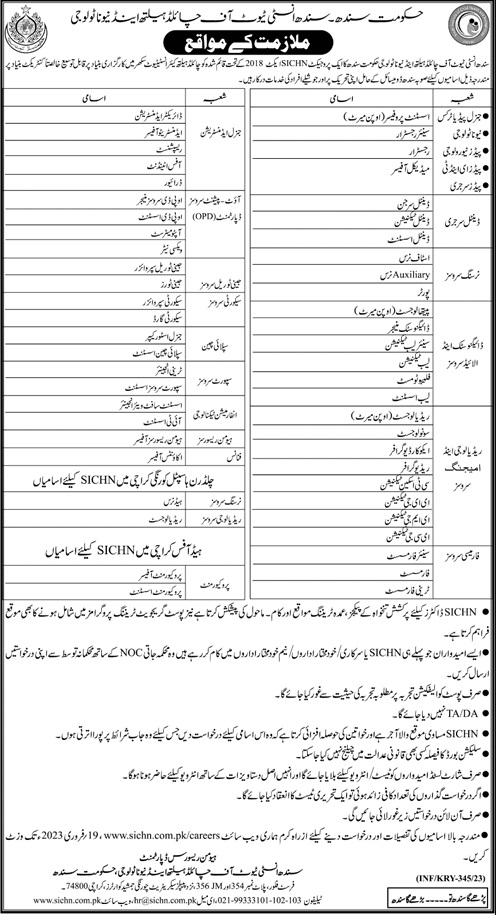 حکومت سندھ۔ سندھ انسٹی ٹیوٹ آف چائلڈ ہیلتھ اینڈ نیوناٹولوجی
ملازمت کے مواقع
سندھ انسٹی ٹیوٹ آف چائلڈ ہیلتھ اینڈ نیوناٹولوجی حکومت سندھ کا ایک پروجیکٹ SICHN ایکٹ 2018 کے تحت قائم شدہ
شعبہ
اسامی
جنرل پیڈیاٹرکس
نیوناٹولوجی
پیڈز نیورولوجی
پیڈز ای اینڈ ٹی
پیڈز سرجری
اسسٹنٹ پروفیسر (اوپن میرٹ)
سینئر رجسٹرار
رجسٹرار
میڈیکل آفیسر
ڈینٹل سرجری
ڈینٹل سرجن
ڈینٹل ٹیکنیشن
ڈینٹل اسسٹنٹ
نرسنگ سروسز
اسٹاف نرس
Auxiliary نرس
پورٹر
ڈائیگنوسٹک اینڈ الائیڈ سروسز
پیتھالوجسٹ (اوپن میرٹ)
ڈائیگنوسٹک منیجر
سینئر لیب ٹیکنیشن
لیب ٹیکنیشن
فلیبوٹومسٹ
لیب اسسٹنٹ
ریڈیالوجی اینڈ امیجنگ سروسز
ریڈیالوجسٹ (اوپن میرٹ)
سونولوجسٹ
ایکو کارڈیوگرافر
ریڈیوگرافر
سی ٹی اسکین ٹیکنیشن
ای ای جی ٹیکنیشن
ای ایم جی ٹیکنیشن
ای سی جی ٹیکنیشن
فارمیسی سروسز
سینئر فارمسٹ
فارمسٹ
ٹرینی فارمسٹ
شعبہ
اسامی
جنرل ایڈمنسٹریشن
ڈائریکٹر ایڈمنسٹریشن
ایڈمنسٹریٹو آفیسر
ریسپشنسٹ
آفس اٹینڈنٹ
ڈرائیور
آؤٹ-پیشنٹ سروسز ڈپارٹمنٹ (OPD)
او پی ڈی سروسز منیجر
او پی ڈی اسسٹنٹ
آپٹومیٹرسٹ
ویکسی نیٹر
جینی ٹوریل سروسز
جینی ٹوریل سپروائزر
جینی ٹورز
سیکورٹی سروسز
سیکورٹی سپروائزر
سیکورٹی گارڈ
سپلائی چین
جنرل اسٹور کیپر
سپلائی چین اسسٹنٹ
سپورٹ سروسز
ٹرینی انجینئر
سپورٹ سروسز اسسٹنٹ
انفارمیشن ٹیکنالوجی
اسسٹنٹ سافٹ ویئر انجینئر
آئی ٹی اسسٹنٹ
ہیومن ریسورسز
ہیومن ریسورسز آفیسر
فنانس
اکاؤنٹس آفیسر
چلڈرن ہاسپٹل کورنگی کراچی میں SICHN کیلئے اسامیاں
نرسنگ سروسز
ہیڈ نرس
ریڈیالوجی سروسز
ریڈیالوجسٹ
ہیڈ آفس کراچی میں SICHN کیلئے اسامیاں
پروکیورمنٹ
پروکیورمنٹ آفیسر
پروکیورمنٹ اسسٹنٹ
SICHN ڈاکٹرز کیلئے پرکشش تنخواہ کے پیکیجز، عمدہ ٹریننگ مواقع اور کام۔ ماحول کی پیشکش کرتا ہے نیز پوسٹ گریجویٹ ٹریننگ پروگرامز میں شامل ہونے کا بھی موقع
فراہم کرتا ہے۔
ایسے امیدواران جو پہلے ہی SICHN یا سرکاری/خود مختار اداروں/نیم خود مختار اداروں میں کام کر رہے ہیں وہ محکمہ جاتی NOC کے ساتھ محکمانہ توسط سے اپنی درخواستیں
ارسال کریں۔
صرف پوسٹ کوالیفکیشن تجربہ پر مطلوبہ تجربہ کی حیثیت سے غور کیا جائے گا۔
TA/DA نہیں دیا جائے گا۔
SICHN مساوی موقع والا آجر ہے اور خواتین کی حوصلہ افزائی کرتا ہے کہ وہ اس اسامی کیلئے درخواست دیں جس کیلئے وہ جاب شرائط پر پورا اترتی ہوں۔
سلیکشن بورڈ کا فیصلہ کسی بھی قانونی عدالت میں چیلنج نہیں کیا جا سکتا۔
صرف شارٹ لسٹڈ امیدواروں کو ٹیسٹ/انٹرویو کیلئے بلایا جائے گا اور انہیں اصل دستاویزات کے ساتھ انٹرویو کیلئے حاضر ہونا ہوگا۔
اگر درخواست گذاروں کی تعداد کافی زائد ہوئی تو ایک تحریری ٹیسٹ کا انعقاد کیا جائے گا۔
صرف آن لائن درخواستیں زیر غور لائی جائیں گی۔
مندرجہ بالا اسامیوں کی تفصیلات اور درخواست دینے کیلئے ازراہ کرم ہماری ویب سائٹ www.sichn.com.pk/careers، 19/فروری 2023ء تک وزٹ
کریں۔
ہیومن ریسورس ڈپارٹمنٹ
سندھ انسٹی ٹیوٹ آف چائلڈ ہیلتھ اینڈ نیوناٹولوجی، حکومت سندھ
فرسٹ فلور، پلاٹ نمبر 354 اور 356 JM، نزد پیپلز سیکریٹریٹ چورنگی جمشید کوارٹرز، کراچی۔74800
ٹیلیفون 021-99333101-102-103، ای میل hr@sichn.com.pk، ویب سائٹ www.sichn.com.pk
(INF/KRY-345/23)
پڑھے گا سندھ ... تو بڑھے گا سندھ